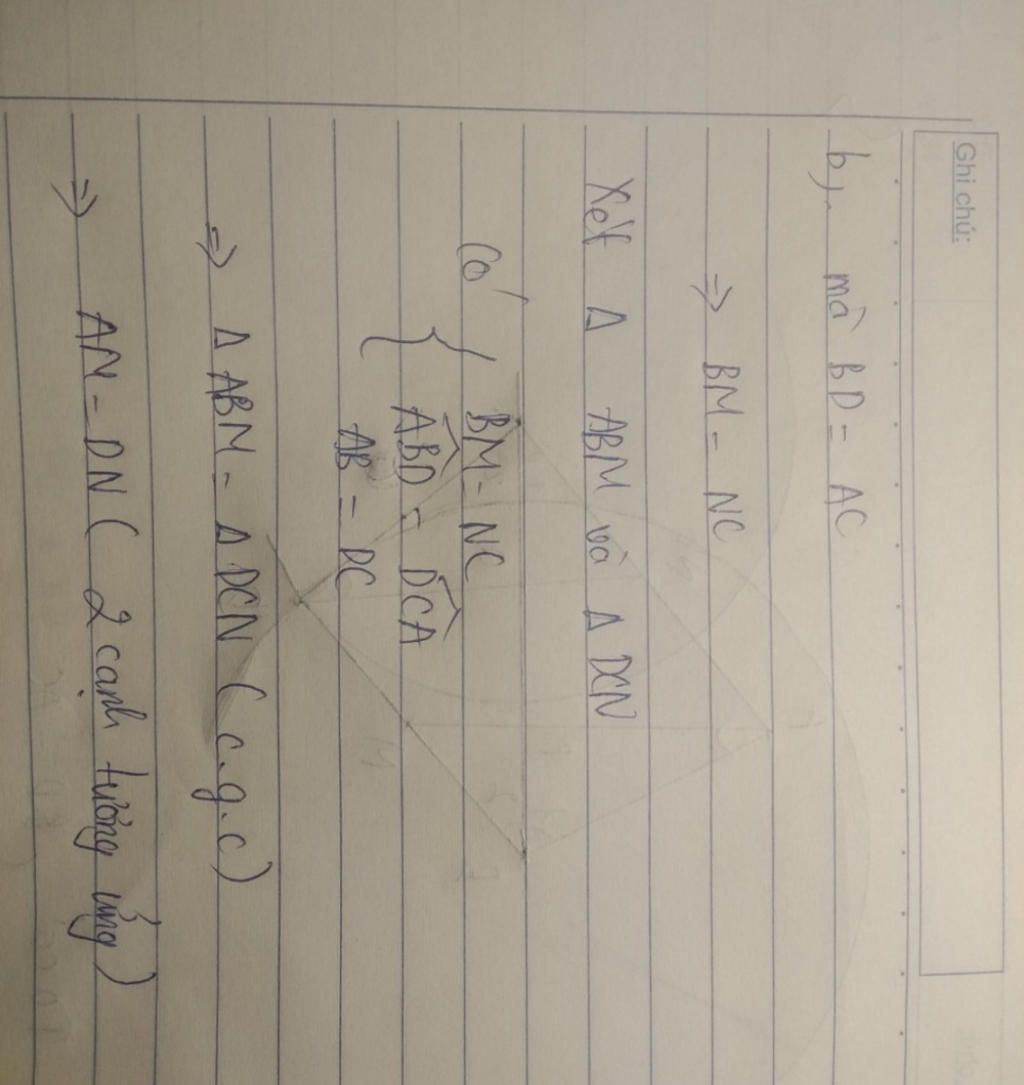 Ghi chú:
b), mà BD = AC
=> BM = NC
Xét Δ ABM và Δ DCN
Có { BM = NC
ABD = DCA
AB = DC
=> Δ ABM = Δ DCN (c.g.c)
=> AM = DN ( 2 cạnh tương ứng )